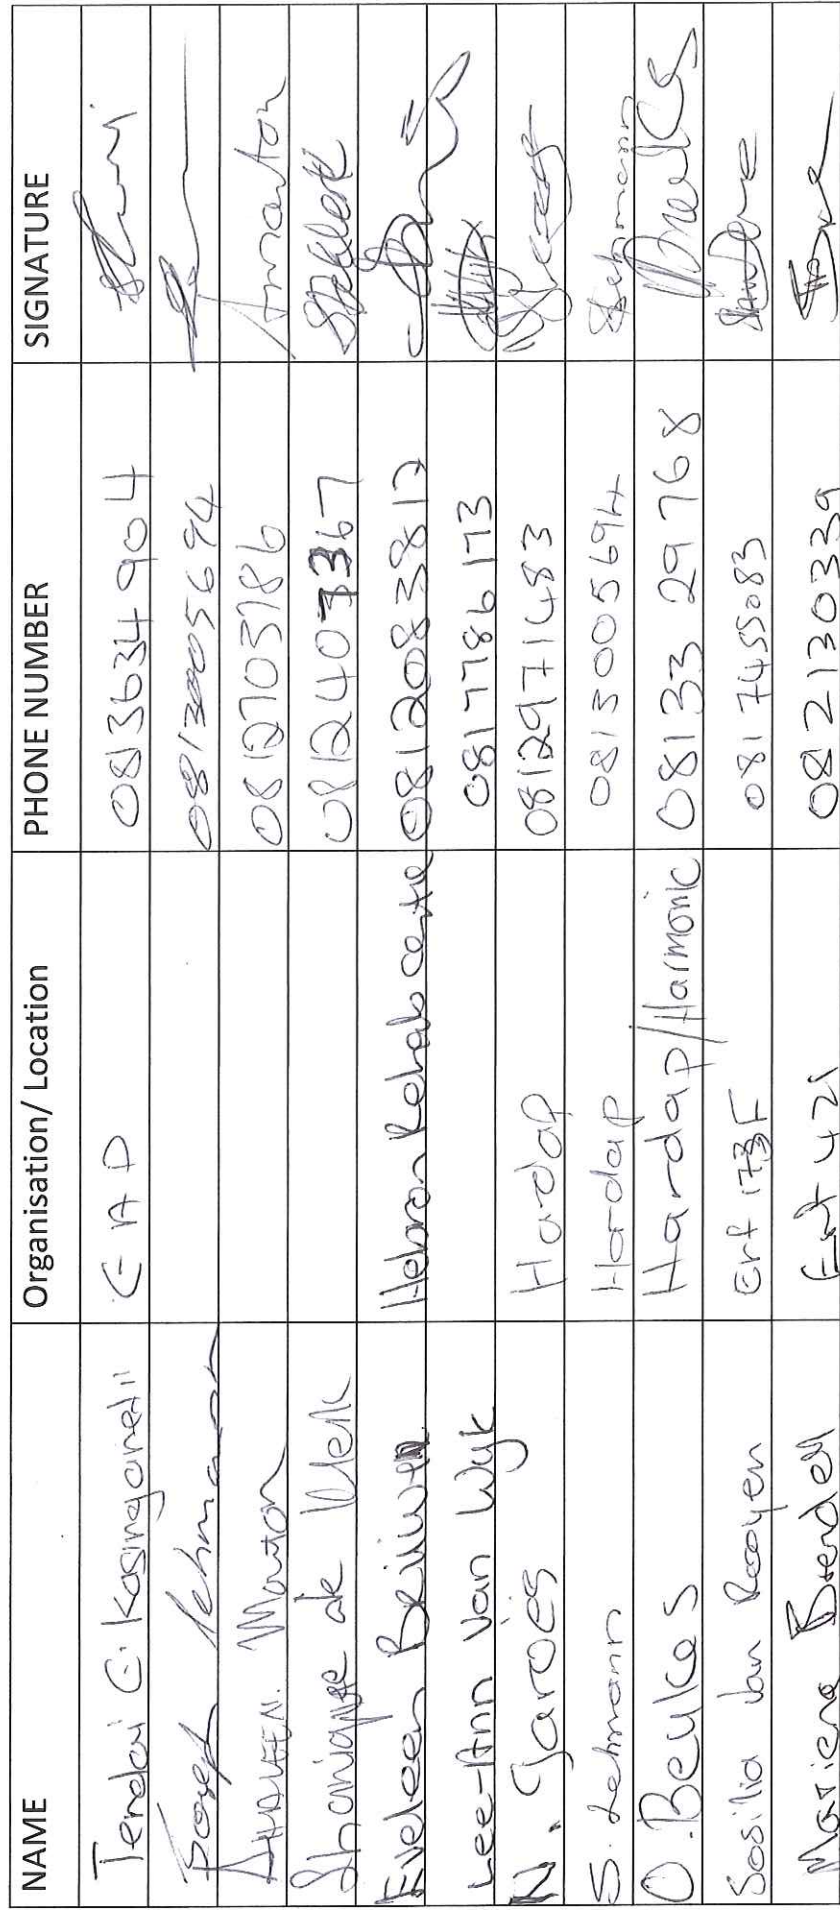 NAME Organisation/ Location PHONE NUMBER SIGNATURE
Tendai E. Kasinganetii EAD 0813634904
Josef Lehmann 0813005694
Marton 0812703786 Amarton
Shanique de Klerk 0812403367 SdeKlerk
Eveleen Brüwer Hebron Rehab Centre 0812083817
Lee-Ann Van Wyk 0817786173
N. Jaroes Hardap 0812971483
S. Lehmann Hardap 0813005694 Lehmann
O. Beukes Hardap/Harmonic 08133 29768 Beukes
Sosilia van Rooyen Erf 173F 0817455083
Mariena Brendell Erf 421 0812130339